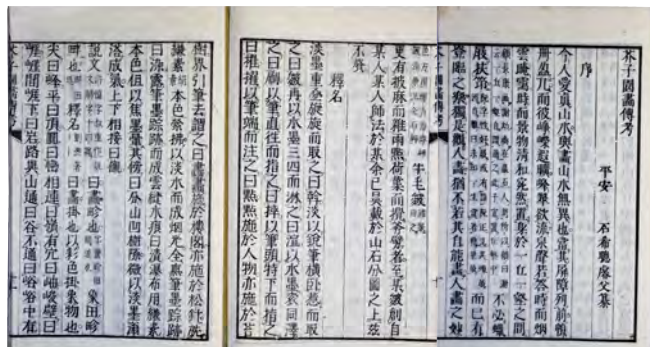 芥子園畫傳考
序
平安
今人愛真山水與畫山水無異也當其屏障列前幀
冊盈几而彼崢嶸遐曠峰翠欲流泉聲若答時而烟
雲晻靄時而景物清和宛然置身於一丘一壑之間
不必蠟
屐扶策 而已有
登臨之樂獨是觀人畫猶不若其自能畫人畫之妙
牛毛皴
更有披麻而雜雨點荷葉而攪斧劈者至某皴創自
某人某人師法於某余已具載於山石分圖之上茲
不贅
釋名
淡墨重疊旋旋而取之曰斡淡以銳筆橫臥惹而取
之曰皴再以水墨三四而淋之曰渲以水墨滾同澤
之曰刷以筆直往而指之曰捽以筆頭特下而指之
曰擢擢以筆端而注之曰點點施於人物亦施於苔
樹界引筆去謂之曰畫畫施於樓閣亦施於松針就
縑素本色縈拂以淡水而成烟光全無筆墨踪跡
曰染露筆墨踪跡而成雲縫水痕曰漬瀑布用縑素
本色但以焦墨暈其傍曰分山凹樹隙微以淡墨滃
溶成氣上下相接曰襯
說文 曰畫畛也 象田畛
畔也 釋名 曰畫掛也以彩色掛象物也
尖曰峰平曰頂圓曰巒相連曰嶺有穴曰岫峻壁曰
崖崖間崖下曰岩路與山通曰谷不通曰峪峪中有